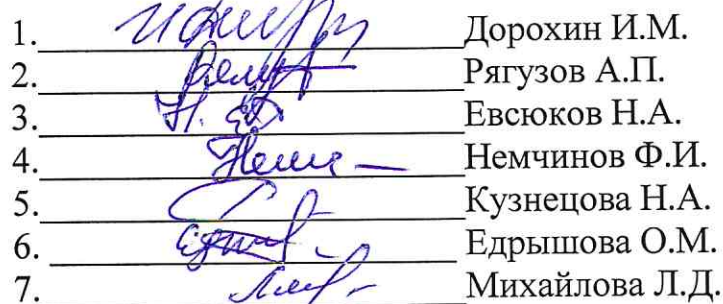 1. Дорохин И.М.
2. Рягузов А.П.
3. Евсюков Н.А.
4. Немчинов Ф.И.
5. Кузнецова Н.А.
6. Едрышова О.М.
7. Михайлова Л.Д.